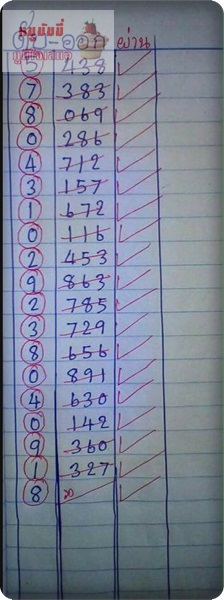 ผ่าน
5 438
7 383
8 069
0 286
4 712
3 157
1 672
0 116
2 453
9 863
2 785
3 729
8 656
0 891
4 630
0 142
9 360
1 327
8